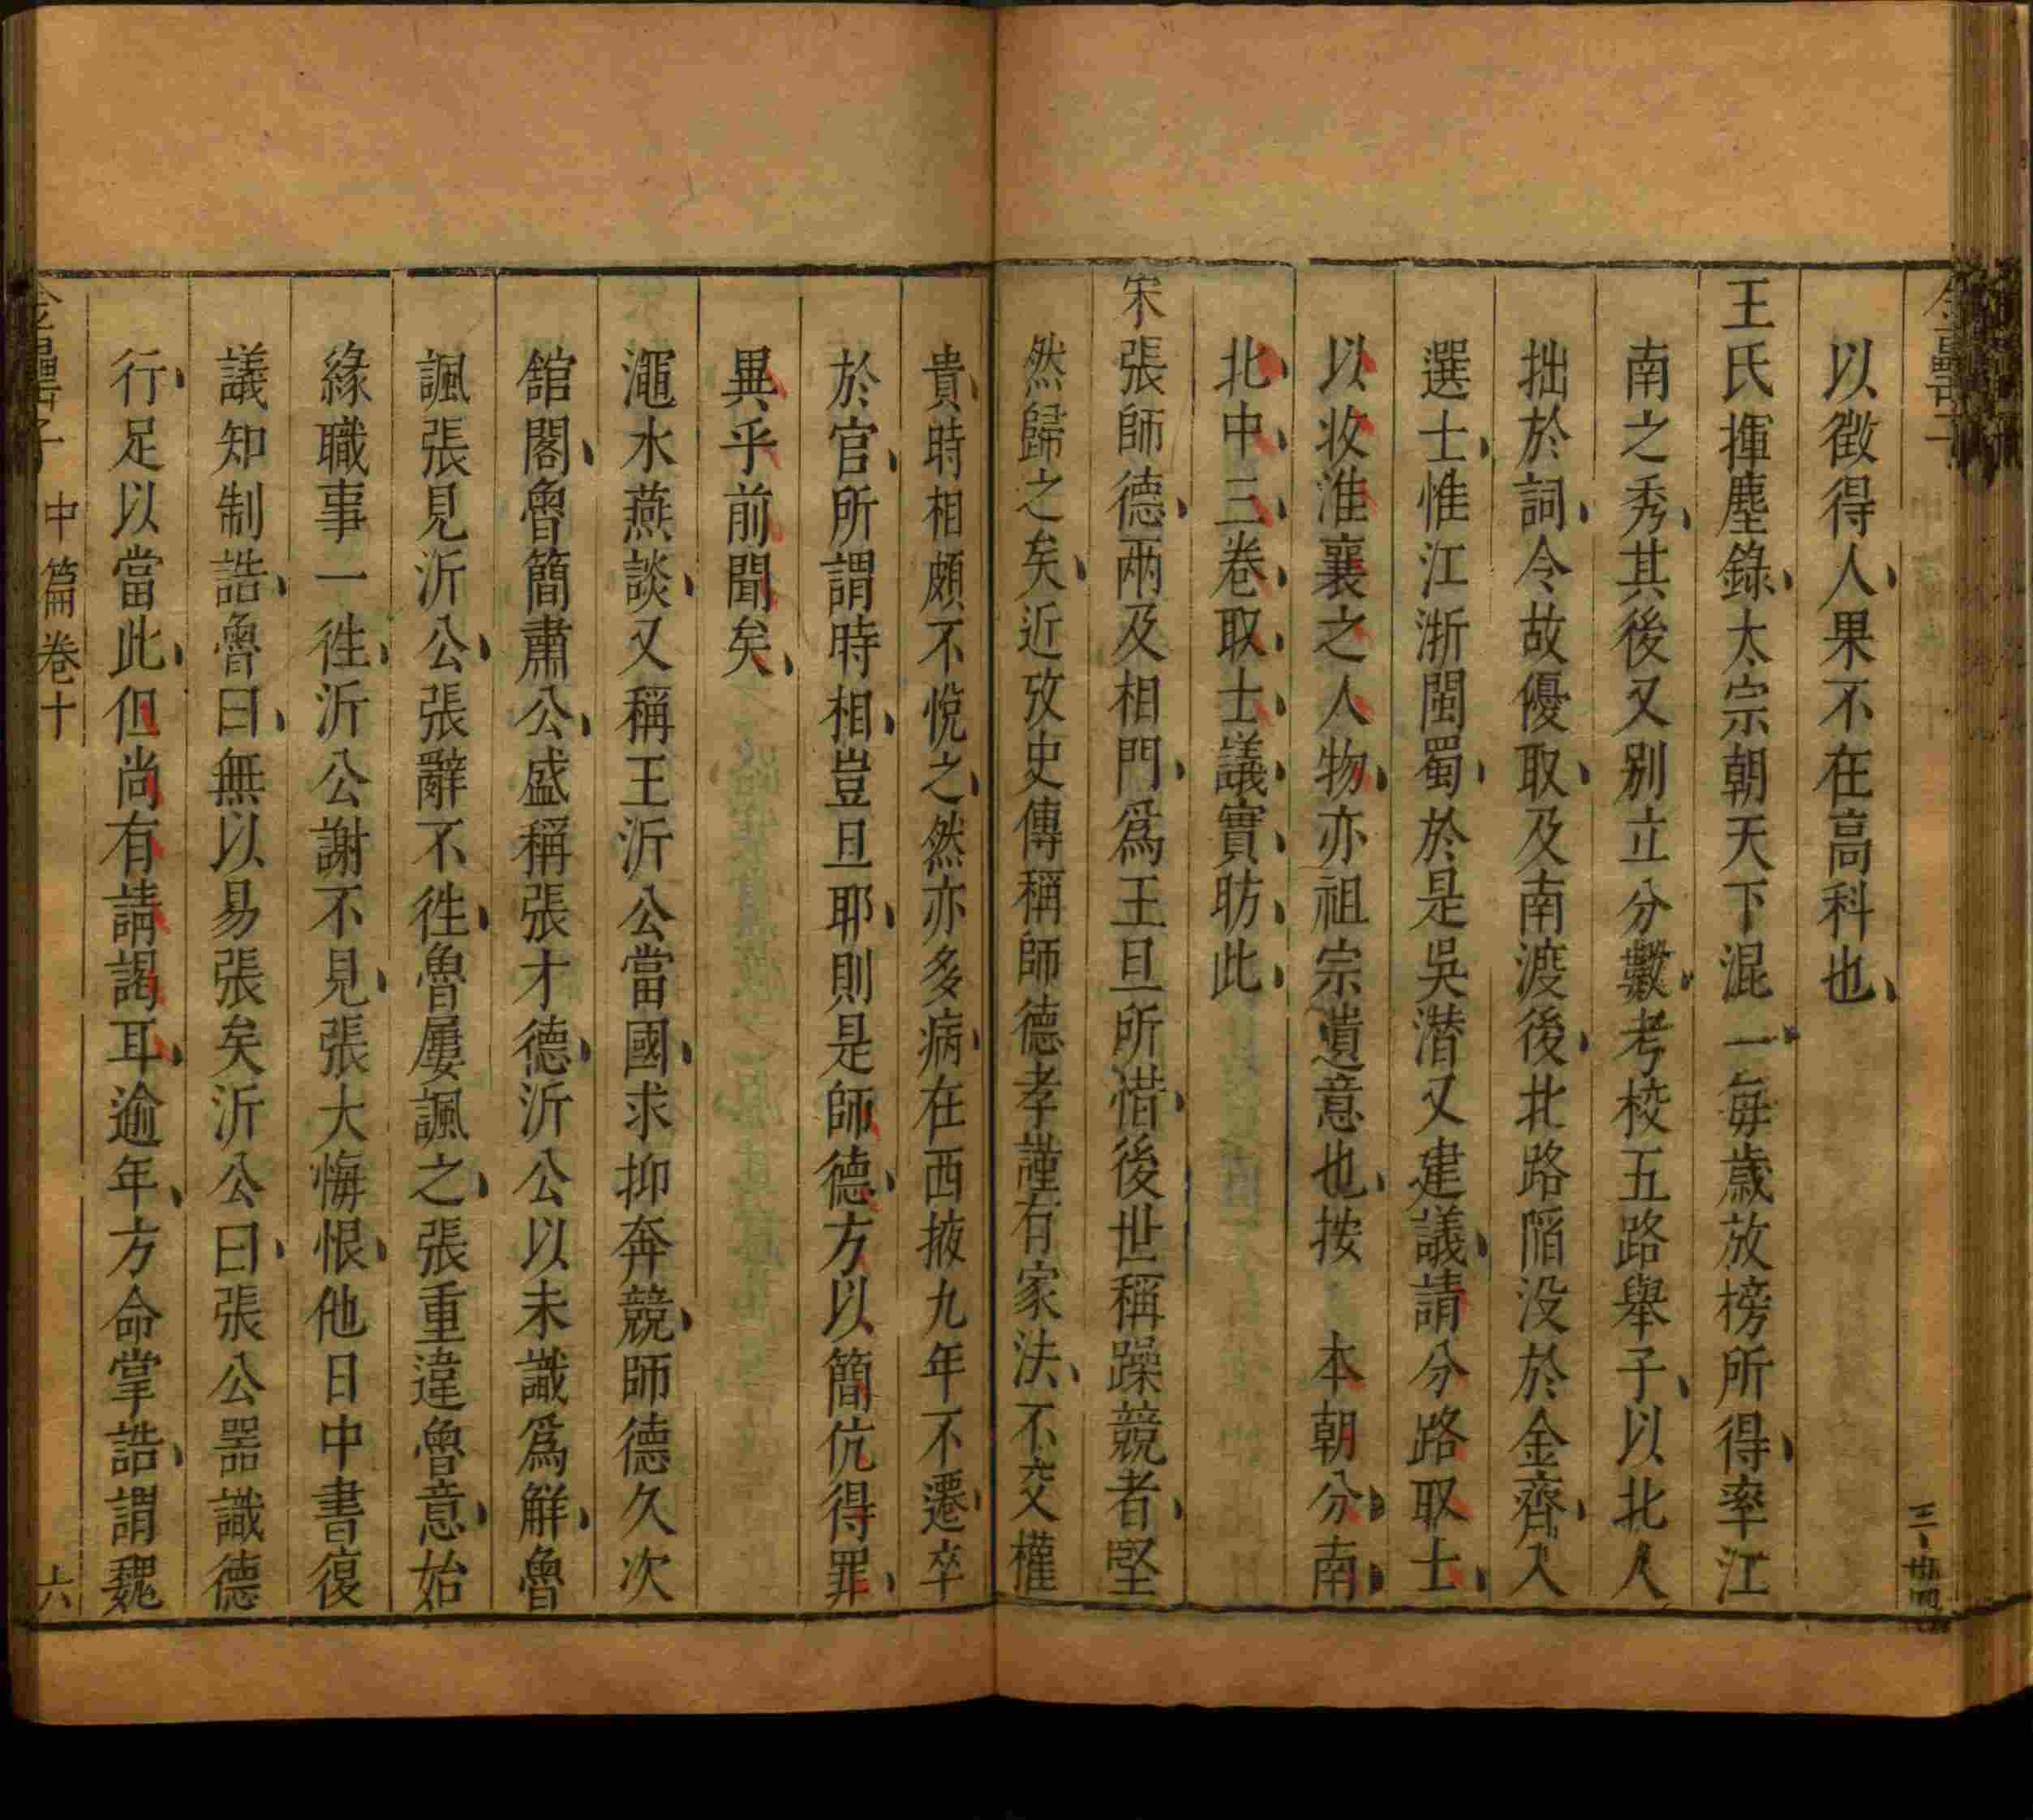 以徵得人果不在高科也
王氏揮塵錄太宗朝天下混一每歲放榜所得率江
南之秀其後又別立分數考校五路舉子以北人
拙於詞令故優取及南渡後北路陷没於金齊入
選士惟江浙閩蜀於是吳潛又建議請分路取士
以收淮襄之人物亦祖宗遺意也按 本朝分南
北中三卷取士議實昉此
宋張師德兩及相門爲王旦所惜後世稱躁競者堅
然歸之矣近攷史傳稱師德孝謹有家法不交權
貴時相頗不悅之然亦多病在西掖九年不遷卒
於官所謂時相豈旦耶則是師德方以簡伉得罪
異乎前聞矣
澠水燕談又稱王沂公當國求抑奔競師德久次
舘閣魯簡肅公盛稱張才德沂公以未識爲解魯
諷張見沂公張辭不徃魯屢諷之張重違魯意始
緣職事一徃沂公謝不見張大悔恨他日中書復
議知制誥魯曰無以易張矣沂公曰張公器識德
行足以當此但尚有請謁耳逾年方命掌誥謂魏
金罍子 中篇卷十 六